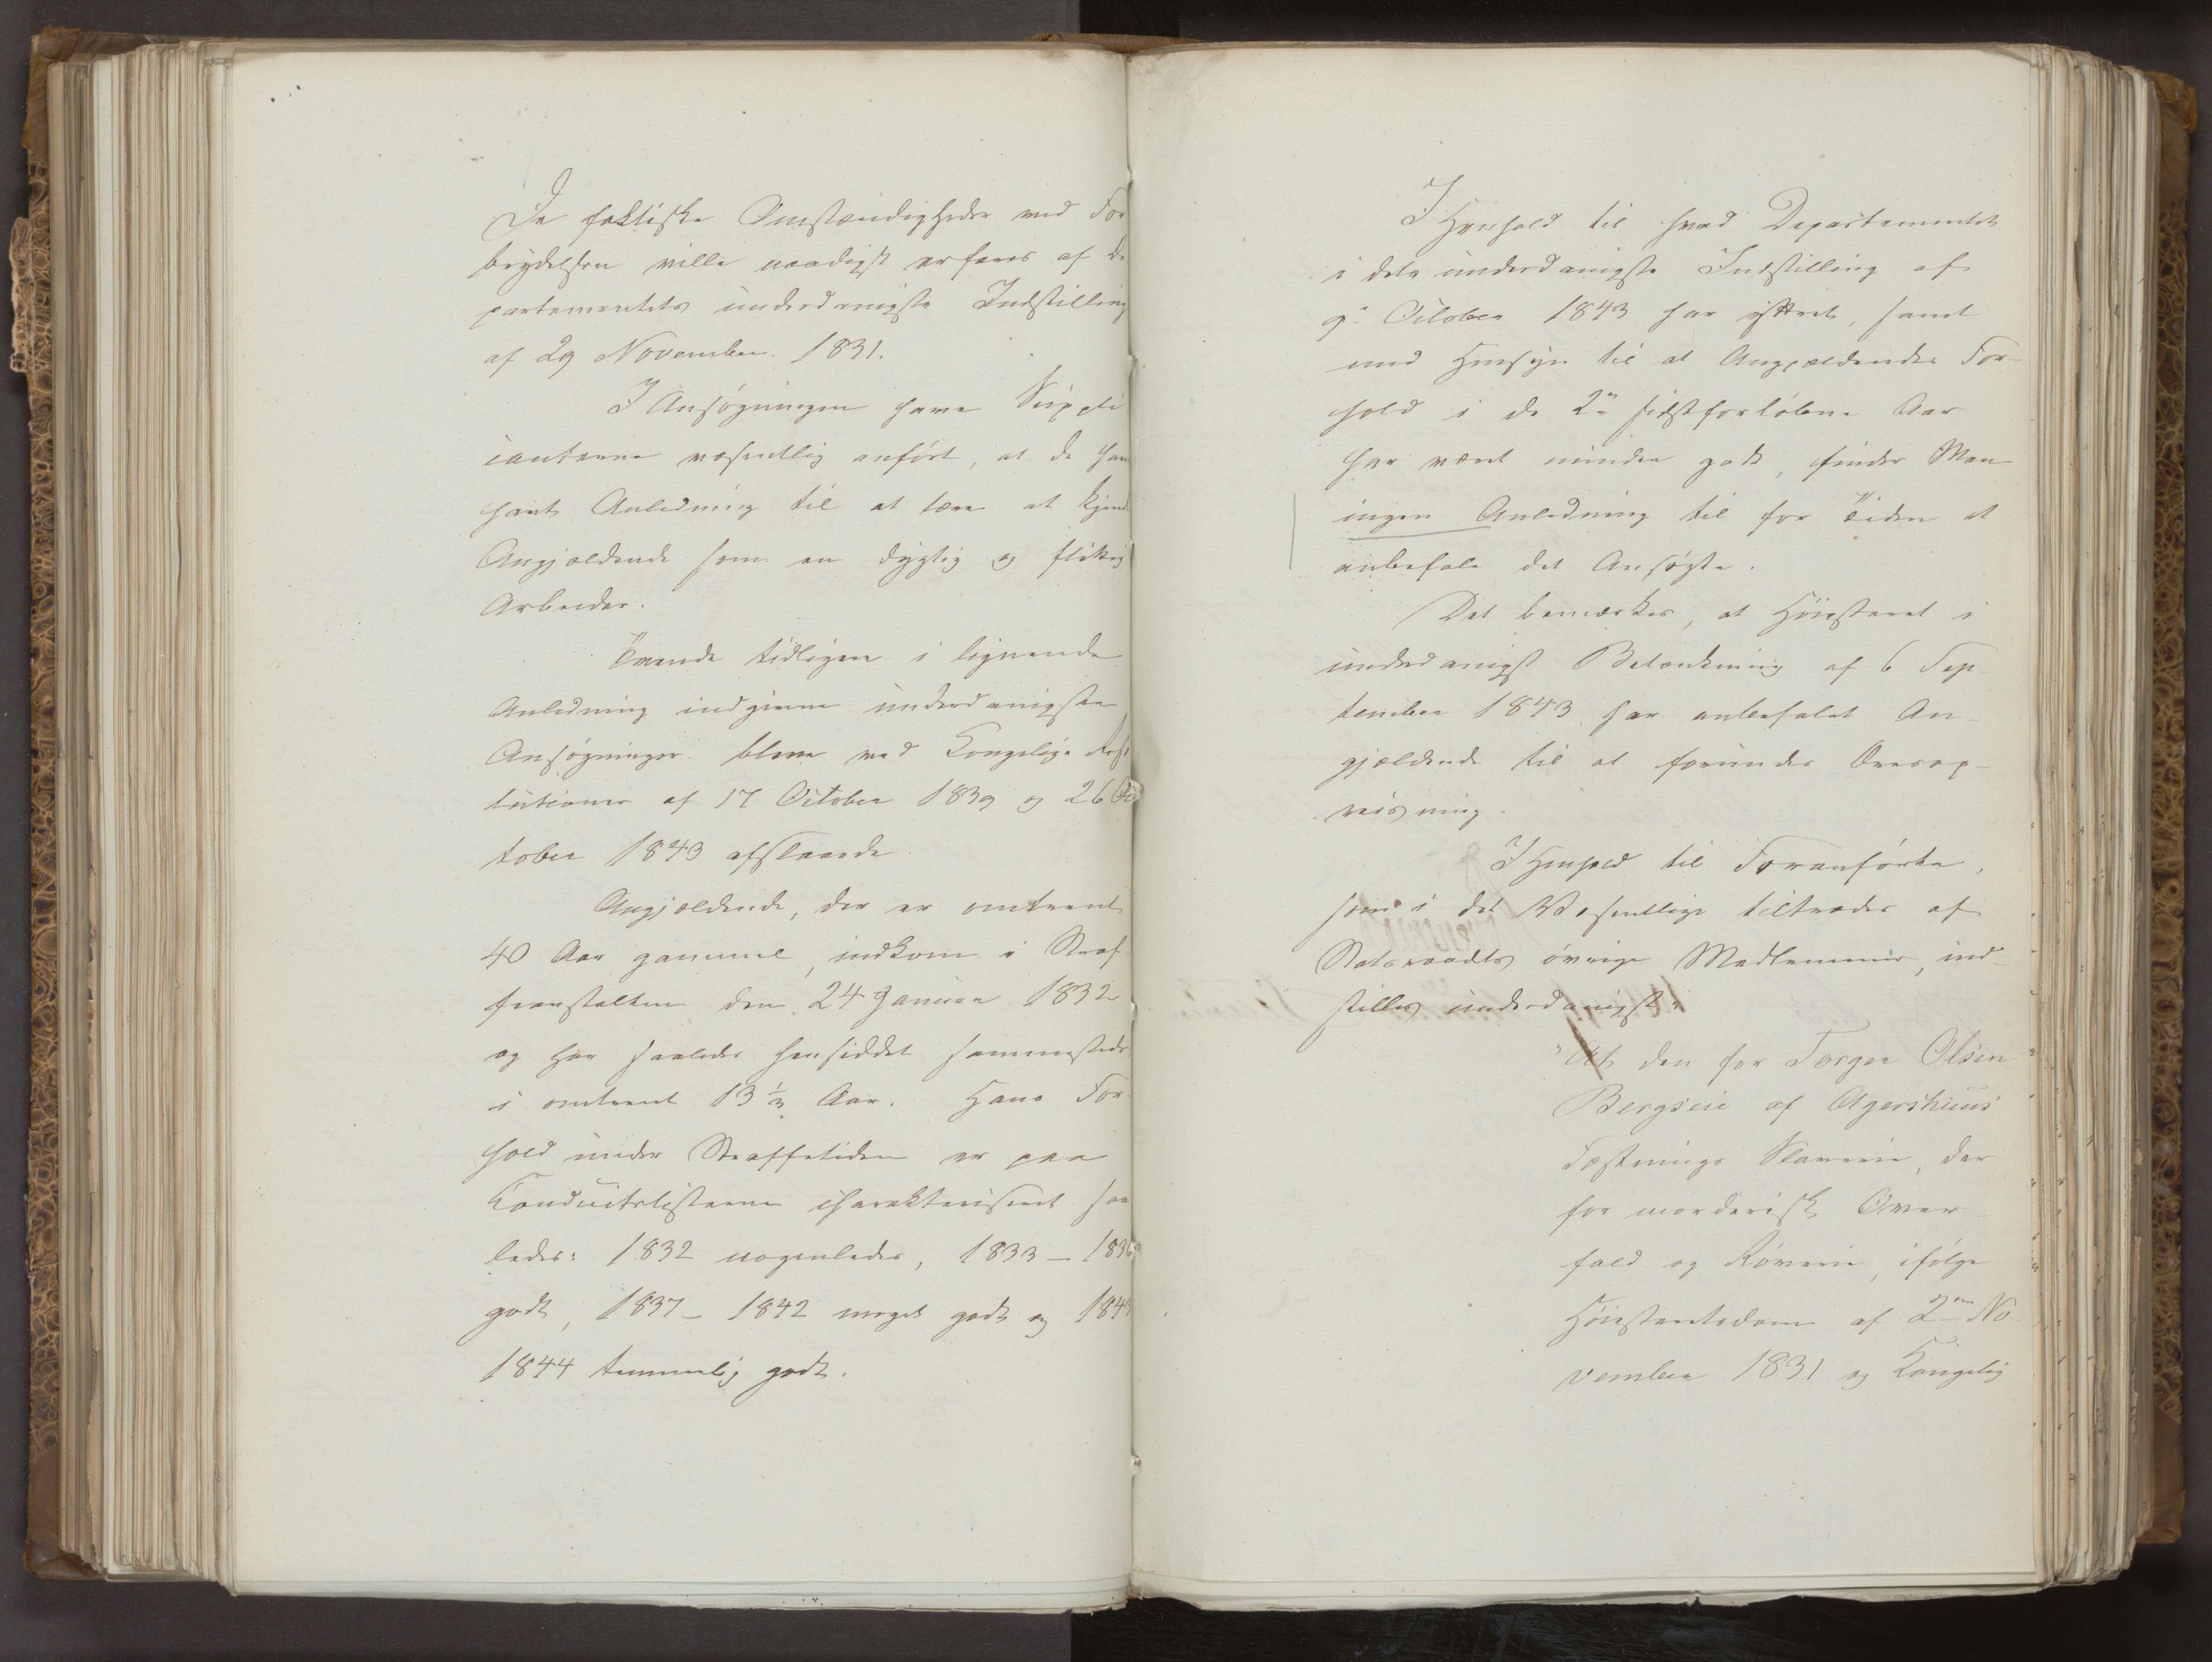 De faktiske Omstændigheder ved For
brydelsen ville naadigst erfares af De
partementets underdanigste Indstilling
af 29 November 1831.
I Ansøgningen have Suppli
canterne væsentlig anført, at de have
havt Anledning til at lære at kjende
Angjældende som en dygtig og flittig
Arbeider.
Tvende tidligere i lignende
Anledning indgivne underdanigste
Ansøgninger bleve ved Kongelige Reso
lutioner af 17 October 1839 og 26 Oc
tober 1843 afslaaede.
Angjældende, der er omtrent
40 Aar gammel, indkom i Straf
feanstalten den 24 Januar 1832
og har saaledes hensiddet sammesteds
i omtrent 13 1/3 Aar. Hans For-
hold under Straffetiden er paa
Conduitelisterne charakteriseret saa
ledes: 1832 nogenledes, 1833 – 1836
godt, 1837 – 1842 meget godt og 1843
1844 temmelig godt.
I Henhold til hvad Departementet
i dets underdanigste Indstilling af
9de October 1843 har yttret, samt
med Hensyn til at Angjældendes For-
hold i de 2de sidstforløbne Aar
har været mindre godt, finder Man
ingen Anledning til for Tiden at
anbefale det Ansøgte.
Det bemærkes, at Høiesteret i
underdanigst Betænkning af 6 Sep-
tember 1843 har anbefalet An-
gjældende til at forundes
I Henhold til Foranførte,
som i det Væsentlige tiltrædes af
Statsraadets øvrige Medlemmer, ind-
stilles underdanigst:
"At den for Torger Olsen
Bergseie af Agershuus
Fæstnings Slaveri, der
for morderisk Over-
fald og Røveri, ifølge
Høiesteretsdom af 2den No-
vember 1831 og Kongelig